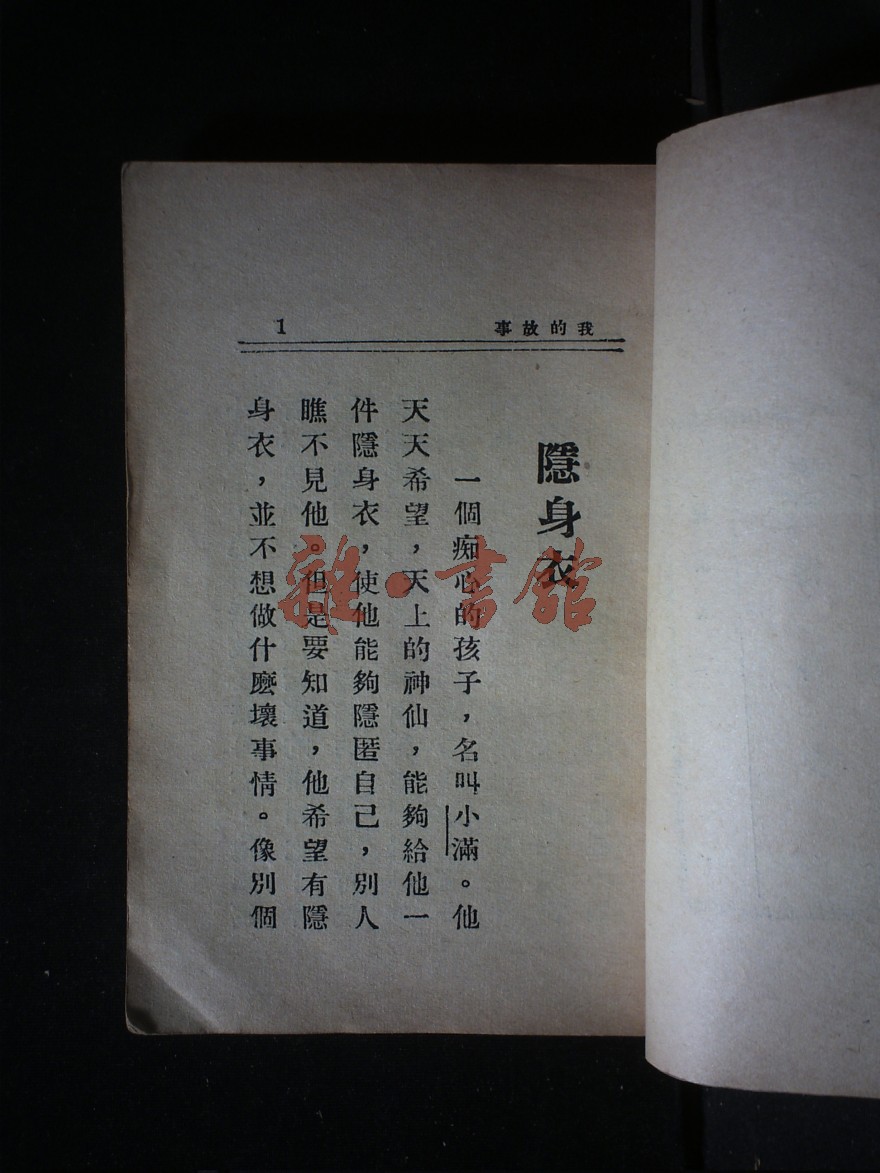 我的故事
1
隱身衣
一個痴心的孩子，名叫小滿。他
天天希望，天上的神仙，能夠給他一
件隱身衣，使他能夠隱匿自己，別人
瞧不見他。但是要知道，他希望有隱
身衣，並不想做什麼壞事情。像別個
雜·書館